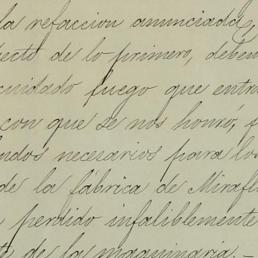 la refaccion anunciada,
pecto de lo primero, deben
cuidado fuego que entra
con que se nos honró, f
ndos necesarios para los
de la fábrica de Mirafl
perdido infaliblemente
de la maquinaria.—